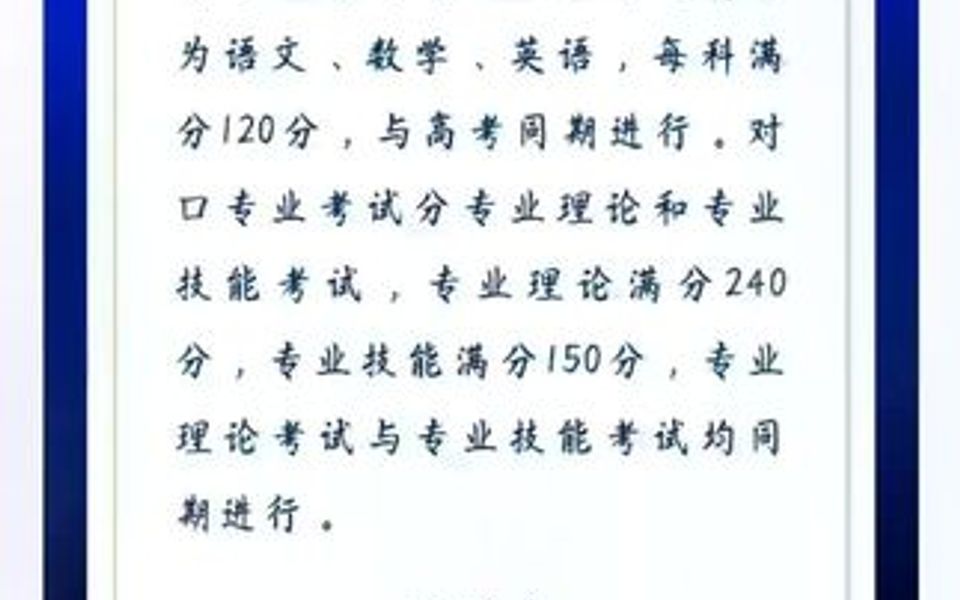 为语文、数学、英语，每科满
分120分，与高考同期进行。对
口专业考试分专业理论和专业
技能考试，专业理论满分240
分，专业技能满分150分，专业
理论考试与专业技能考试均同
期进行。